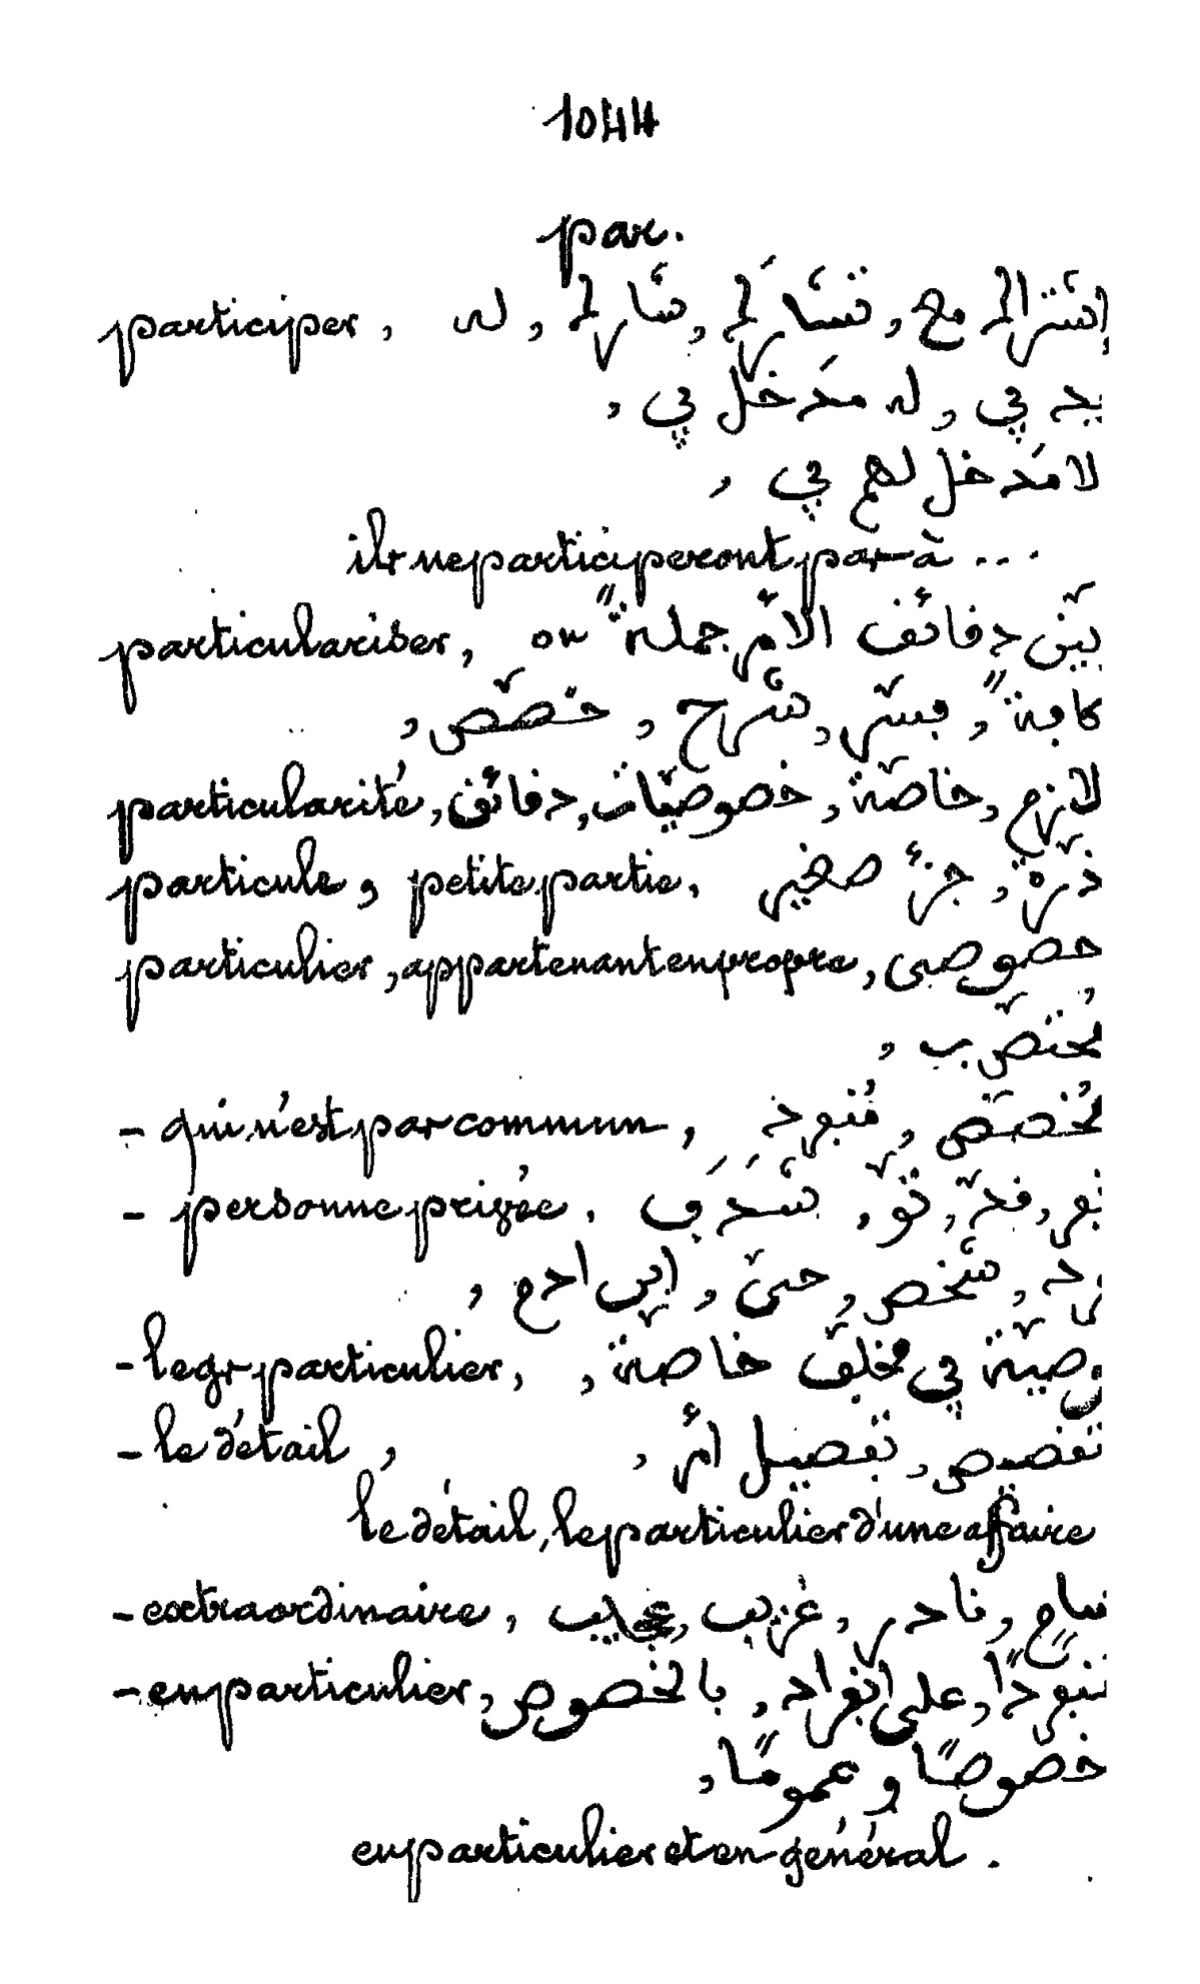 1044
par.
participer, له, شارك, تشارك, إشترك مع
يد في, له مدخل في,
لا مدخل لهم في,
ils ne participeront pas à ...
particulariser, بيّن دقائق الأمر جملةً ou
كافةً, فسّر, شرح, خصّص,
particularité, لازم, خاصّة, خصوصيّات, دقائق
particule, petite partie, ذرّة, جزء صغير
particulier, appartenant en propre, خصوصى
مُختصّ ب,
- qui n'est pas commun, مُخصّص, مُنفرد
- personne privée,
شخص, حىّ, ابن ادم,
- leg particulier, وصيّة في مخلّف خاصّة,
- le détail, تفصيل أمر,
le détail, le particulier d'une affaire
- extraordinaire, نادر, غريب, عجايب
- en particulier, على انفراد, بالخصوص
خصوصًا و عمومًا,
en particulier et en général.